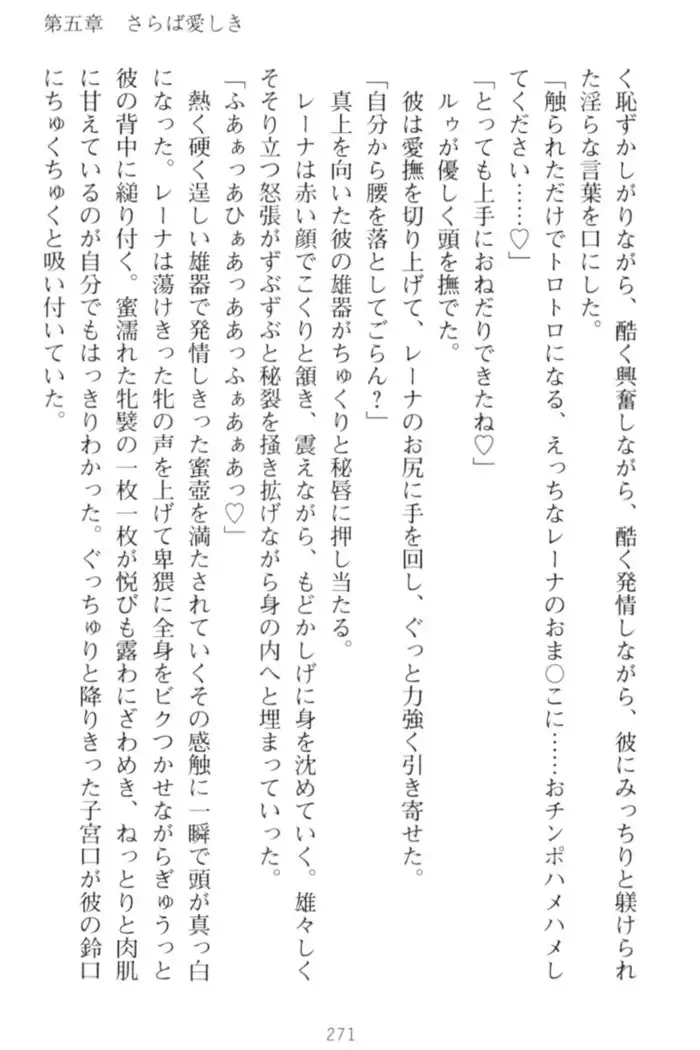 第五章　さらば愛しき
く恥ずかしがりながら、酷く興奮しながら、酷く発情しながら、彼にみっちりと躾けられ
た淫らな言葉を口にした。
「触られただけでトロトロになる、えっちなレーナのおま○こに……おチンポハメハメし
てください……♡」
「とっても上手におねだりできたね♡」
ルゥが優しく頭を撫でた。
彼は愛撫を切り上げて、レーナのお尻に手を回し、ぐっと力強く引き寄せた。
「自分から腰を落としてごらん？」
真上を向いた彼の雄器がちゅくりと秘唇に押し当たる。
レーナは赤い顔でこくりと頷き、震えながら、もどかしげに身を沈めていく。雄々しく
そそり立つ怒張がずぶずぶと秘裂を掻き拡げながら身の内へと埋まっていった。
「ふあぁっあひぁあっああっふぁあぁあっ♡」
熱く硬く逞しい雄器で発情しきった蜜壺を満たされていくその感触に一瞬で頭が真っ白
になった。レーナは蕩けきった牝の声を上げて卑猥に全身をビクつかせながらぎゅうっと
彼の背中に縋り付く。蜜濡れた牝襞の一枚一枚が悦びも露わにざわめき、ねっとりと肉肌
に甘えているのが自分でもはっきりわかった。ぐっちゅりと降りきった子宮口が彼の鈴口
にちゅくちゅくと吸い付いていた。
271